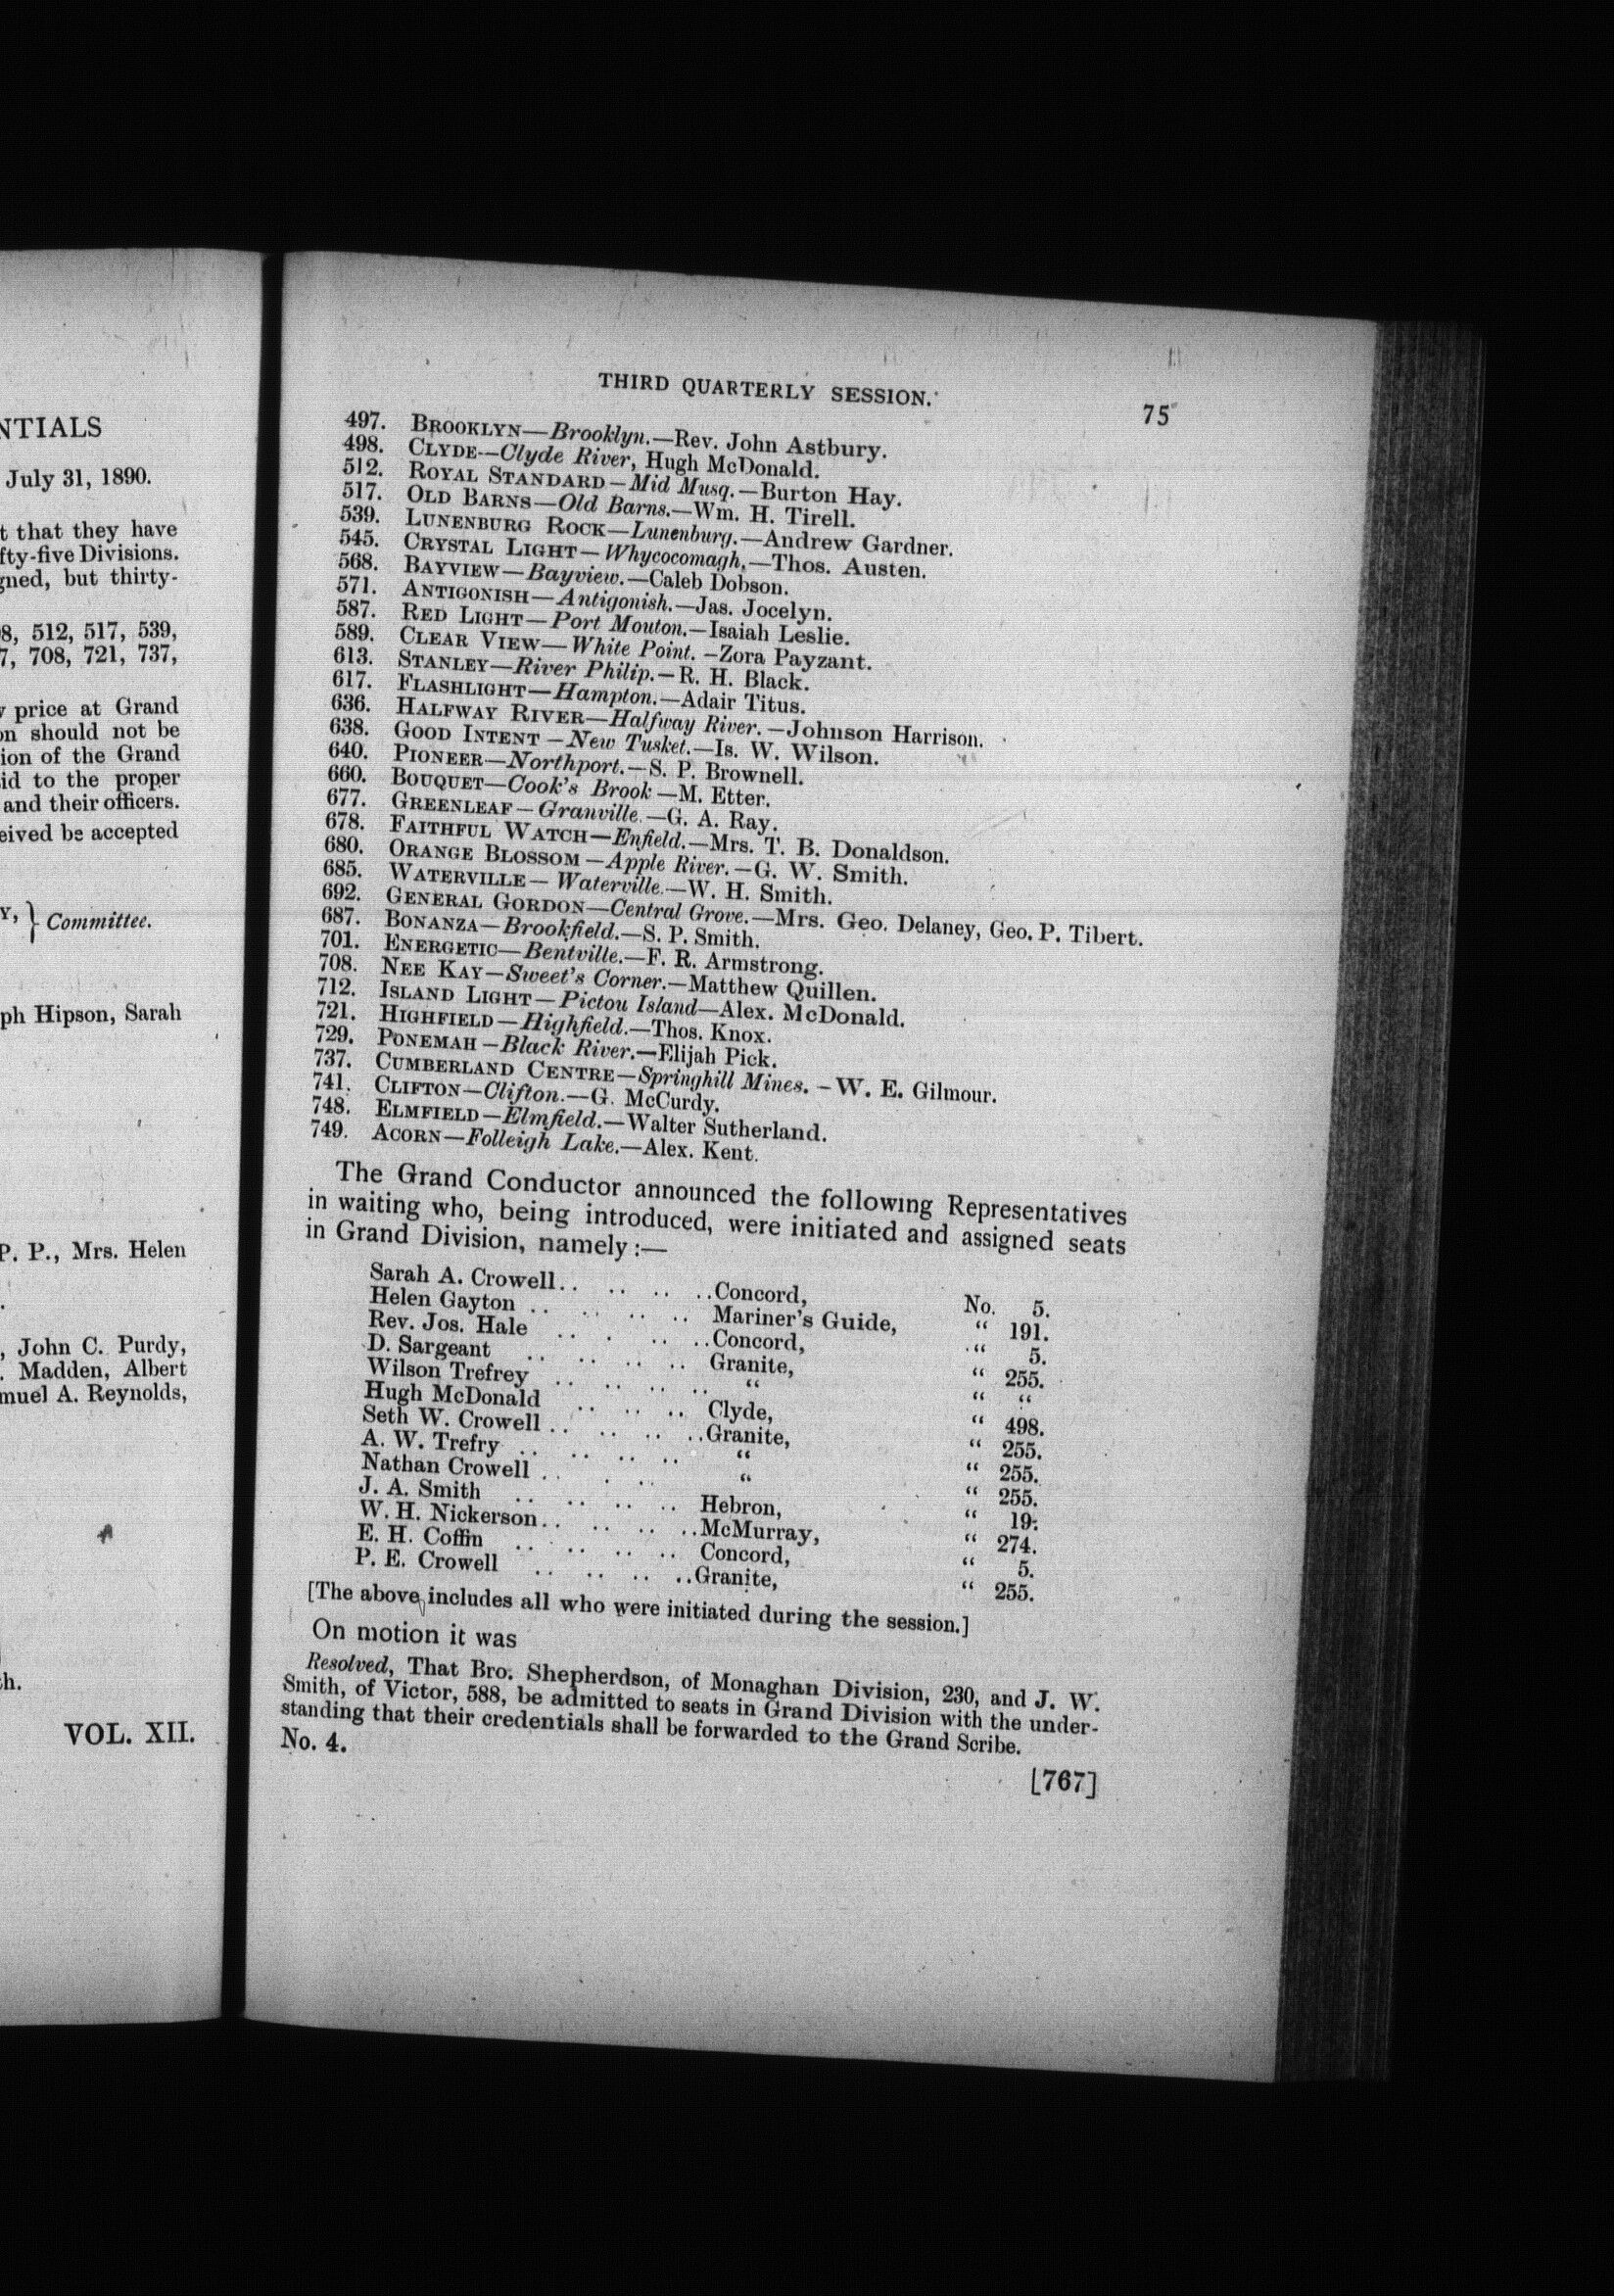 NTIALS
July 31, 1890.
t that they have
fty-five Divisions.
gned, but thirty-
8, 512, 517, 539,
7, 708, 721, 737,
price at Grand
on should not be
ion of the Grand
id to the proper
and their officers.
eived be accepted
Y, } Committee.
ph Hipson, Sarah
P. P., Mrs. Helen
, John C. Purdy,
. Madden, Albert
muel A. Reynolds,
th.
VOL. XII.
THIRD QUARTERLY SESSION. 75
497. BROOKLYN—Brooklyn.—Rev. John Astbury.
498. CLYDE—Clyde River, Hugh McDonald.
512. ROYAL STANDARD—Mid Musq.—Burton Hay.
517. OLD BARNS—Old Barns.—Wm. H. Tirell.
539. LUNENBURG ROCK—Lunenburg.—Andrew Gardner.
545. CRYSTAL LIGHT—Whycocomagh.—Thos. Austen.
568. BAYVIEW—Bayview.—Caleb Dobson.
571. ANTIGONISH—Antigonish.—Jas. Jocelyn.
587. RED LIGHT—Port Mouton.—Isaiah Leslie.
589. CLEAR VIEW—White Point.—Zora Payzant.
613. STANLEY—River Philip.—R. H. Black.
617. FLASHLIGHT—Hampton.—Adair Titus.
636. HALFWAY RIVER—Halfway River.—Johnson Harrison.
638. GOOD INTENT—New Tusket.—Is. W. Wilson.
640. PIONEER—Northport.—S. P. Brownell.
660. BOUQUET—Cook's Brook—M. Etter.
677. GREENLEAF—Granville.—G. A. Ray.
678. FAITHFUL WATCH—Enfield.—Mrs. T. B. Donaldson.
680. ORANGE BLOSSOM—Apple River.—G. W. Smith.
685. WATERVILLE—Waterville.—W. H. Smith.
692. GENERAL GORDON—Central Grove.—Mrs. Geo. Delaney, Geo. P. Tibert.
687. BONANZA—Brookfield.—S. P. Smith.
701. ENERGETIC—Bentville.—F. R. Armstrong.
708. NEE KAY—Sweet's Corner.—Matthew Quillen.
712. ISLAND LIGHT—Pictou Island—Alex. McDonald.
721. HIGHFIELD—Highfield.—Thos. Knox.
729. PONEMAH—Black River.—Elijah Pick.
737. CUMBERLAND CENTRE—Springhill Mines.—W. E. Gilmour.
741. CLIFTON—Clifton.—G. McCurdy.
748. ELMFIELD—Elmfield.—Walter Sutherland.
749. ACORN—Folleigh Lake.—Alex. Kent.
The Grand Conductor announced the following Representatives
in waiting who, being introduced, were initiated and assigned seats
in Grand Division, namely:—
Sarah A. Crowell.. .. .. ..Concord, No. 5.
Helen Gayton .. .. .. .. Mariner's Guide, " 191.
Rev. Jos. Hale .. . .. ..Concord, " 5.
D. Sargeant .. .. .. .. Granite, " 255.
Wilson Trefrey .. .. .. .. " " "
Hugh McDonald .. .. .. Clyde, " 498.
Seth W. Crowell .. .. .. ..Granite, " 255.
A. W. Trefry .. .. .. .. " " 255.
Nathan Crowell .. . .. " " 255.
J. A. Smith .. .. .. .. Hebron, " 19.
W. H. Nickerson.. .. .. ..McMurray, " 274.
E. H. Coffin .. .. .. .. Concord, " 5.
P. E. Crowell .. .. .. ..Granite, " 255.
[The above includes all who were initiated during the session.]
On motion it was
Resolved, That Bro. Shepherdson, of Monaghan Division, 230, and J. W.
Smith, of Victor, 588, be admitted to seats in Grand Division with the under-
standing that their credentials shall be forwarded to the Grand Scribe.
No. 4.
[767]